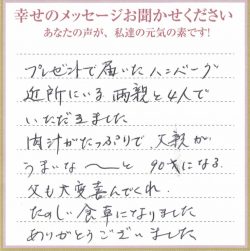 幸せのメッセージお聞かせください
あなたの声が、私達の元気の素です!
プレゼントで届いたハンバーグ
近所にいる両親と4人で
いただきました
肉汁がたっぷりで、父親が
うまいな〜と 90才になる
父も大変喜んでくれ
たのしい食卓になりました
ありがとうございました